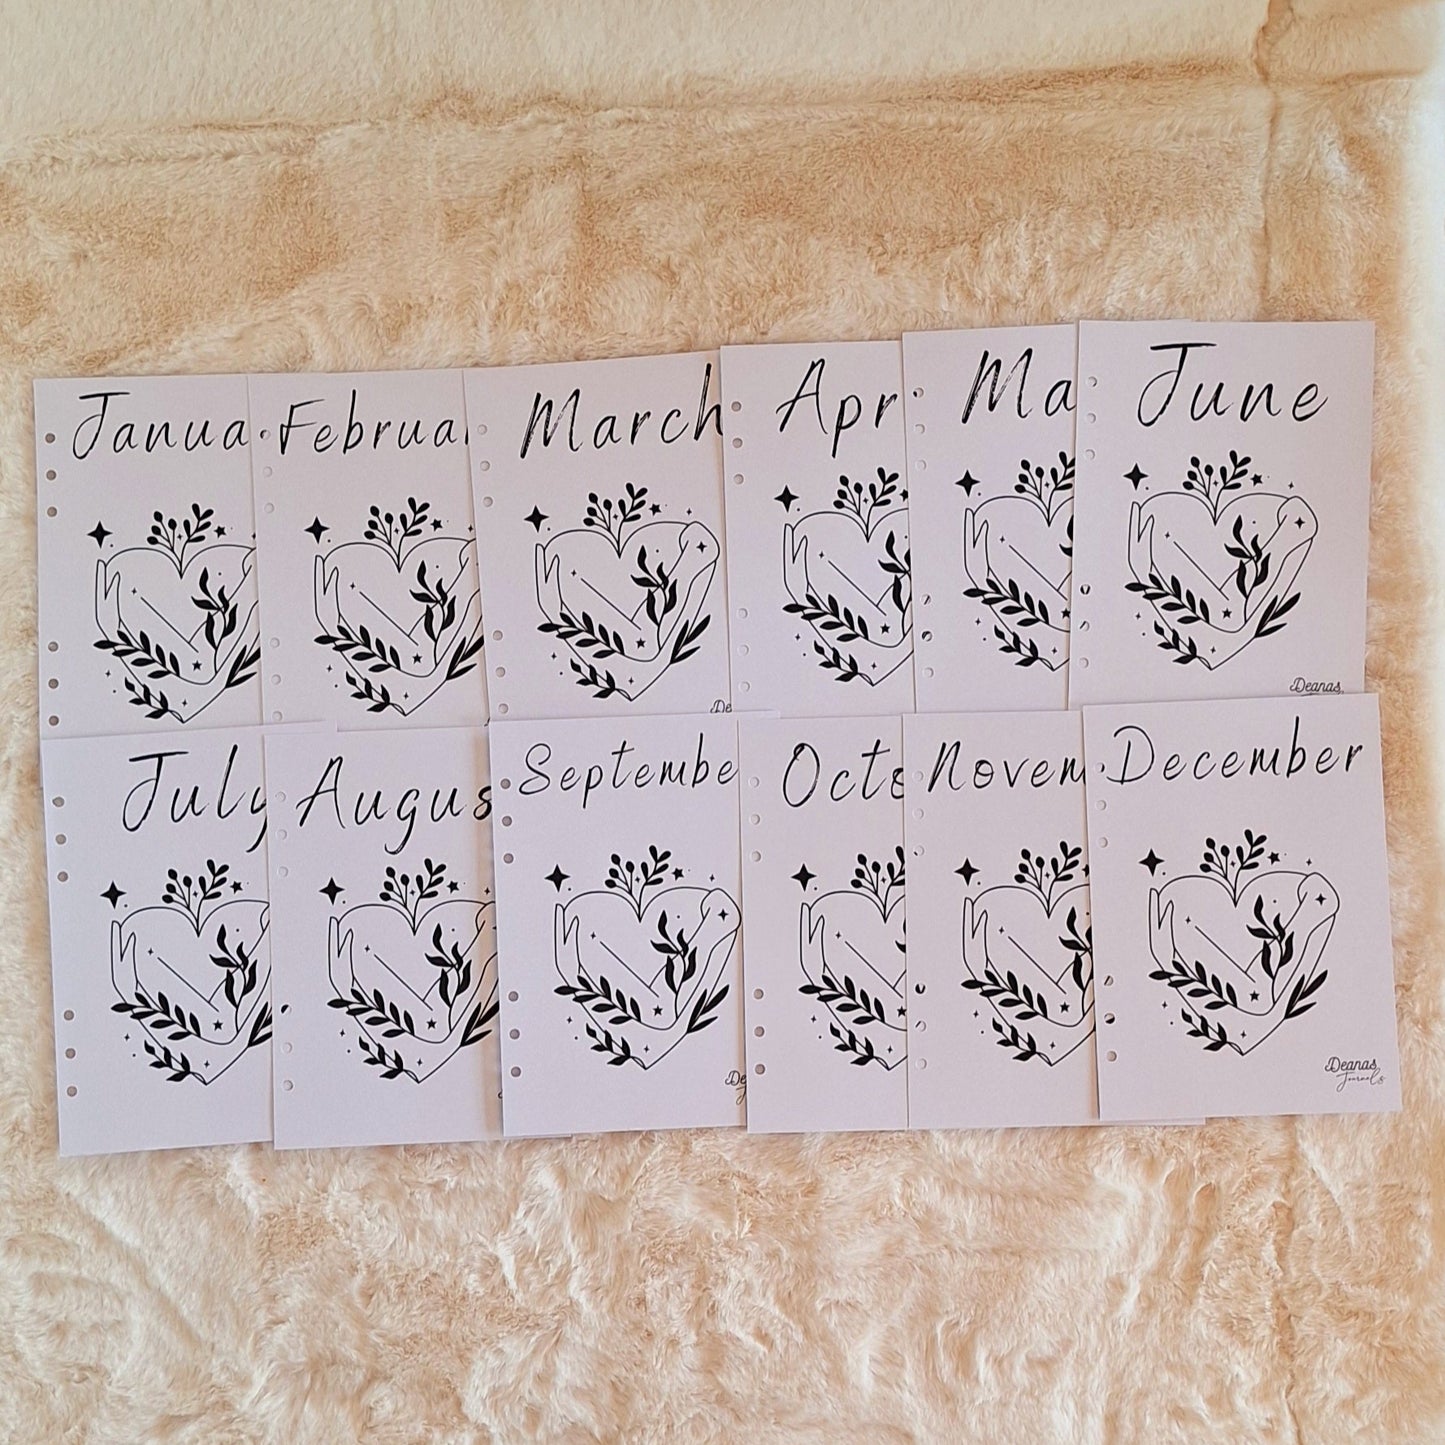 Janua
Februa
March
Apr
Ma
June
De
Deanas
July
Augus
Septembe
Octo
Novem
December
De
Deanas
Journals